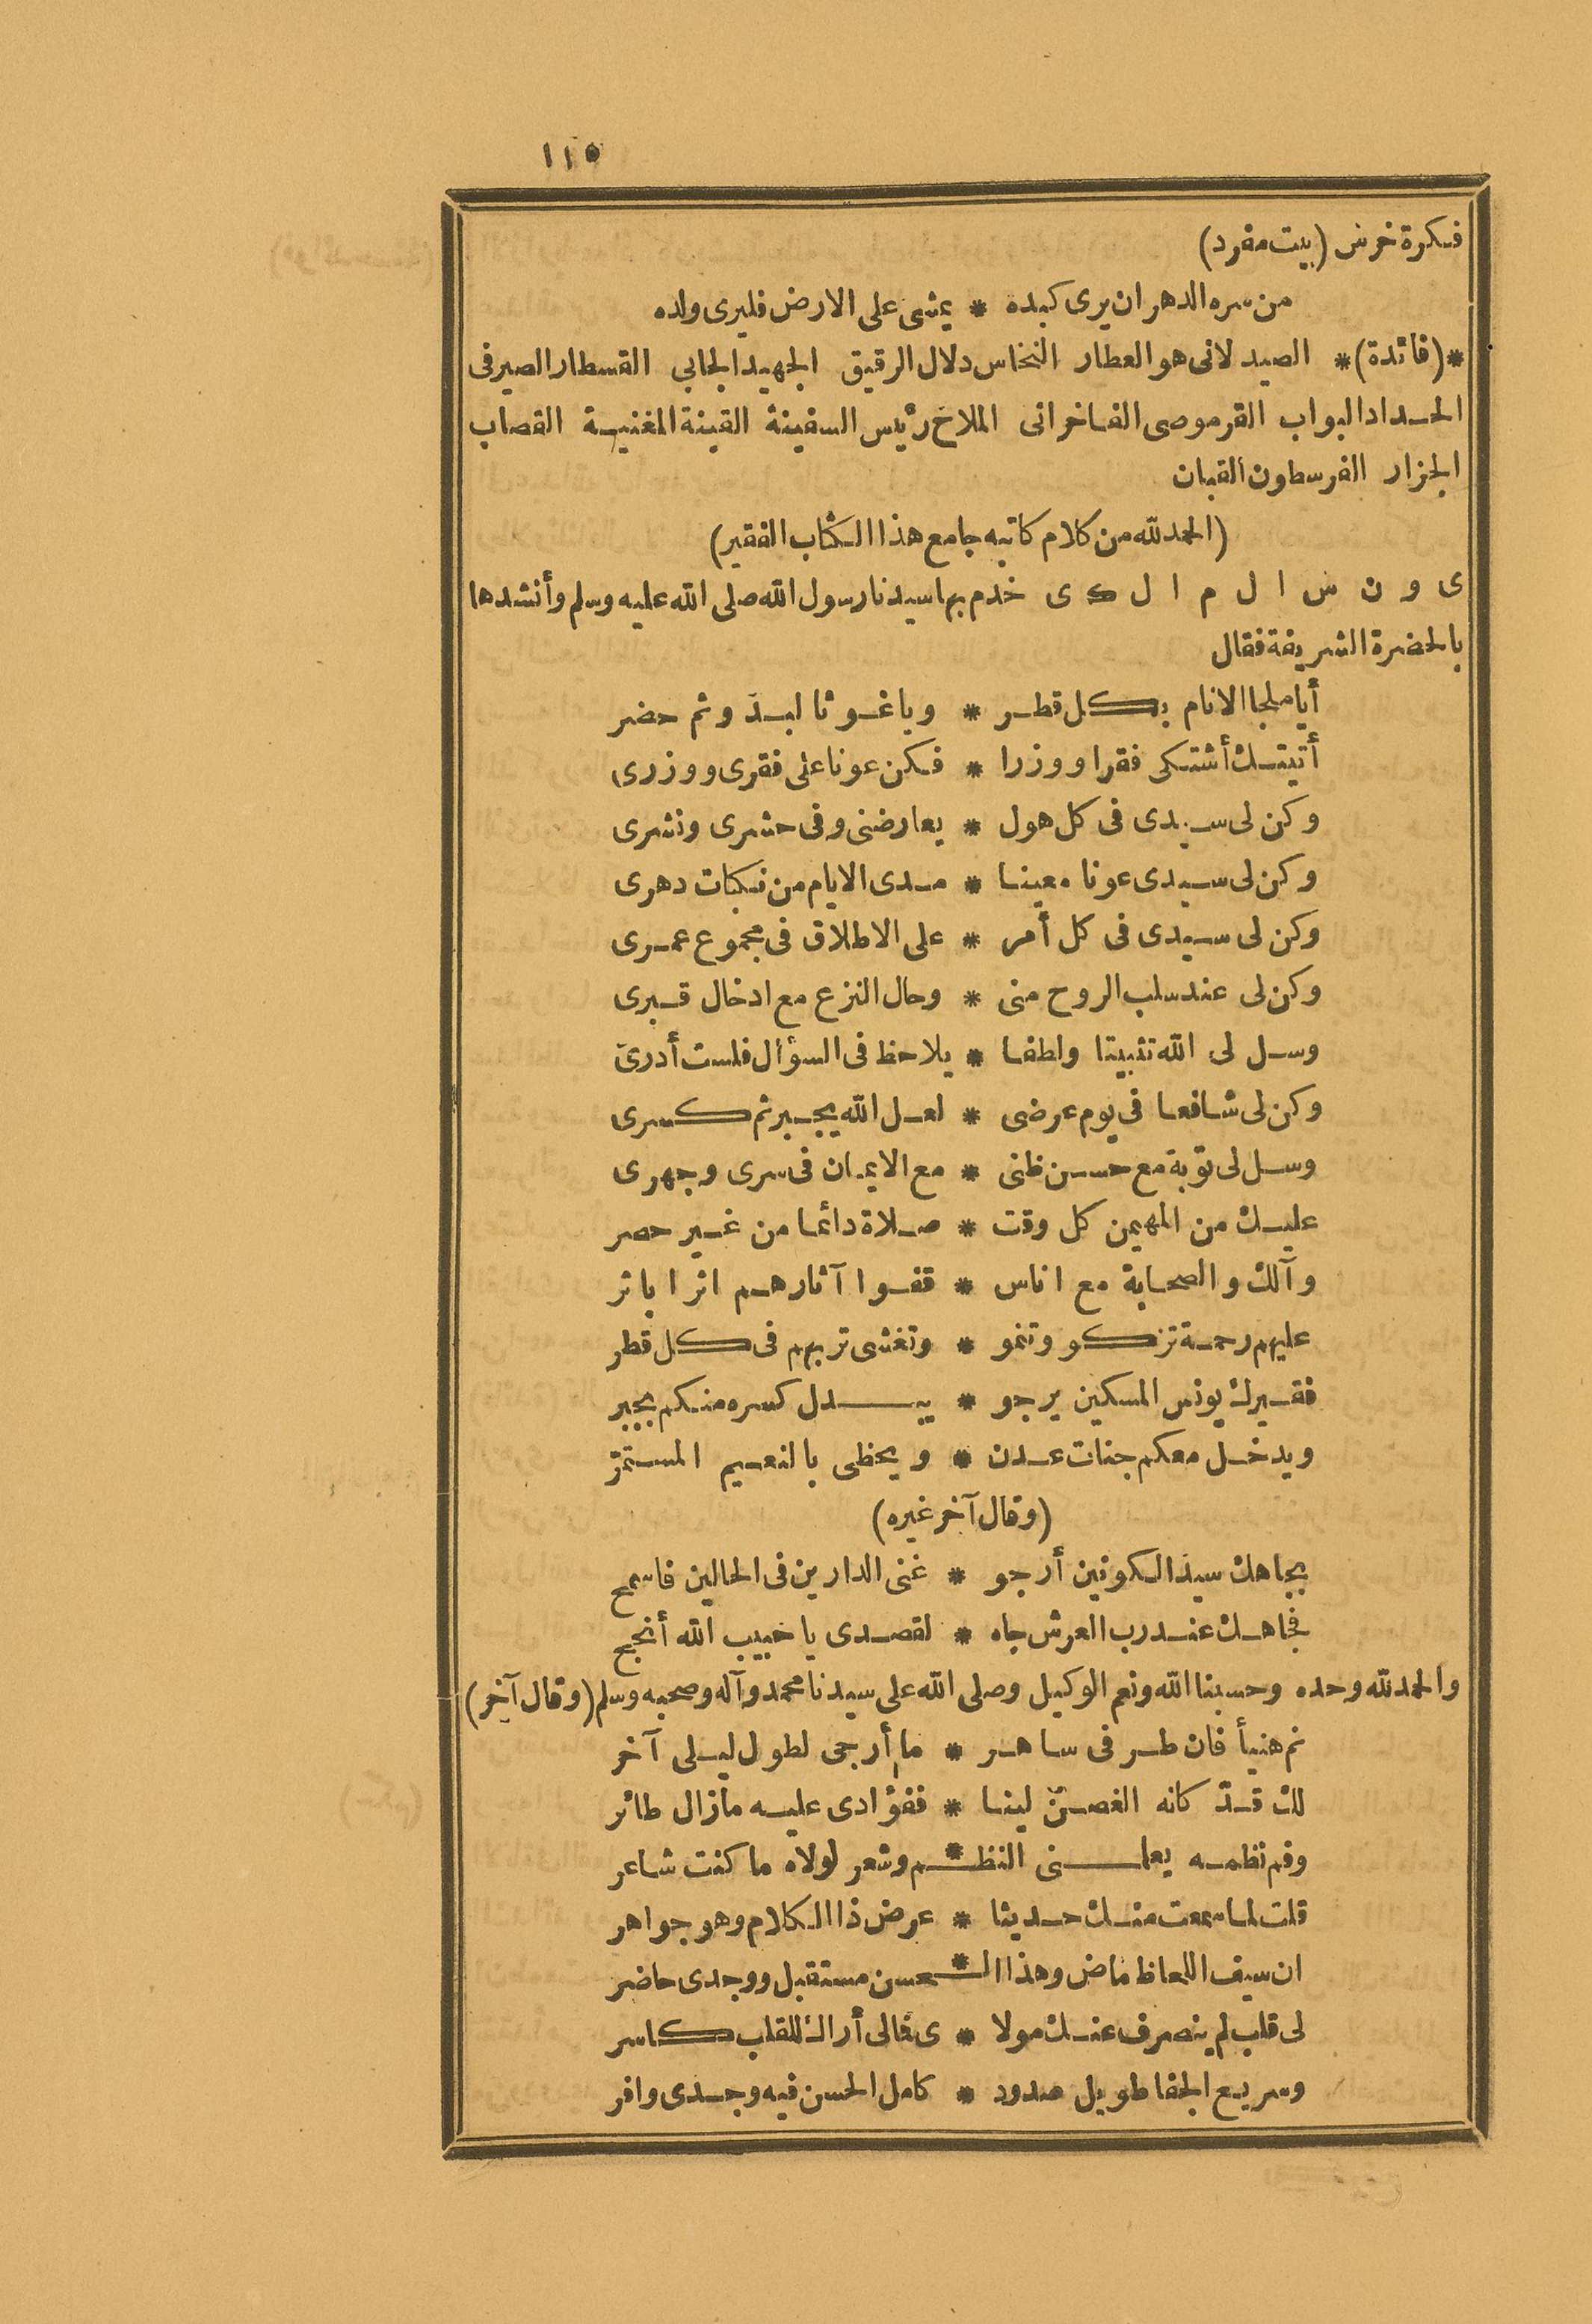 ١١٥
فكرة خرس (بيت مفرد)
من سره الدهر ان يرى كبده * يمشى على الارض فليرى ولده
*(فائدة)* الصيدلانى هو العطار النخاس دلال الرقيق الجهيد الجابي القسطار الصيرفى
الحداد البواب القرموصى الفاخرانى الملاح رئيس السفينة القينة المغنية القصاب
الجزار الفرسطون القبان
(الحمد لله من كلام كاتبه جامع هذا الكتاب الفقير)
ى و ن س ا ل م ا ل ك ى خدم بها سيدنا رسول الله صلى الله عليه وسلم وأنشدها
بالحضرة الشريفة فقال
أيا ملجا الانام بكل قطر * وياغوثا لبدو ثم حضر
أتيتك أشتكى فقرا ووزرا * فكن عونا على فقرى ووزرى
وكن لى سيدى فى كل هول * يعارضنى وفى حشرى ونشرى
وكن لى سيدى عونا معينا * مدى الايام من نكبات دهرى
وكن لى سيدى فى كل أمر * على الاطلاق فى مجموع عمرى
وكن لى عند سلب الروح منى * وحال النزع مع ادخال قبرى
وسل لى الله تثبيتا ولطفا * يلاحظ فى السؤال فلست أدرى
وكن لى شافعا فى يوم عرضى * لعل الله يجبر ثم كسرى
وسل لى توبة مع حسن ظنى * مع الايمان فى سرى وجهرى
عليك من المهيمن كل وقت * صلاة دائما من غير حصر
وآلك والصحابة مع اناس * قفوا آثارهم اثرا باثر
عليهم رحمة تزكو وتنمو * وتغشى تربهم فى كل قطر
فقيرك يونس المسكين يرجو * يبدل كسره منكم بجبر
ويدخل معكم جنات عدن * ويحظى بالنعيم المستمرّ
(وقال آخر غيره)
بجاهك سيد الكونين أرجو * غنى الدارين فى الحالين فاسمح
فجاهك عند رب العرش جاه * لقصدى يا حبيب الله أنجح
والحمد لله وحده وحسبنا الله ونعم الوكيل وصلى الله على سيدنا محمد وآله وصحبه وسلم (وقال آخر)
نم هنيأ فان طرفى ساهر * ما أرجى لطول ليلى آخر
لك قدّ كانه الغصن لينا * ففؤادى عليه مازال طائر
وفم نظمه يعلمنى النظـ*ـم وشعر لولاه ما كنت شاعر
قلت لما سمعت منك حديثا * عرض ذا الكلام وهو جواهر
ان سيف اللحاظ ماض وهذا الـ*ـحسن مستقبل ووجدى حاضر
لى قلب لم ينصرف عنك مولا * ى فالى أراك للقلب كاسر
وسريع الجفا طويل صدود * كامل الحسن فيه وجدى وافر